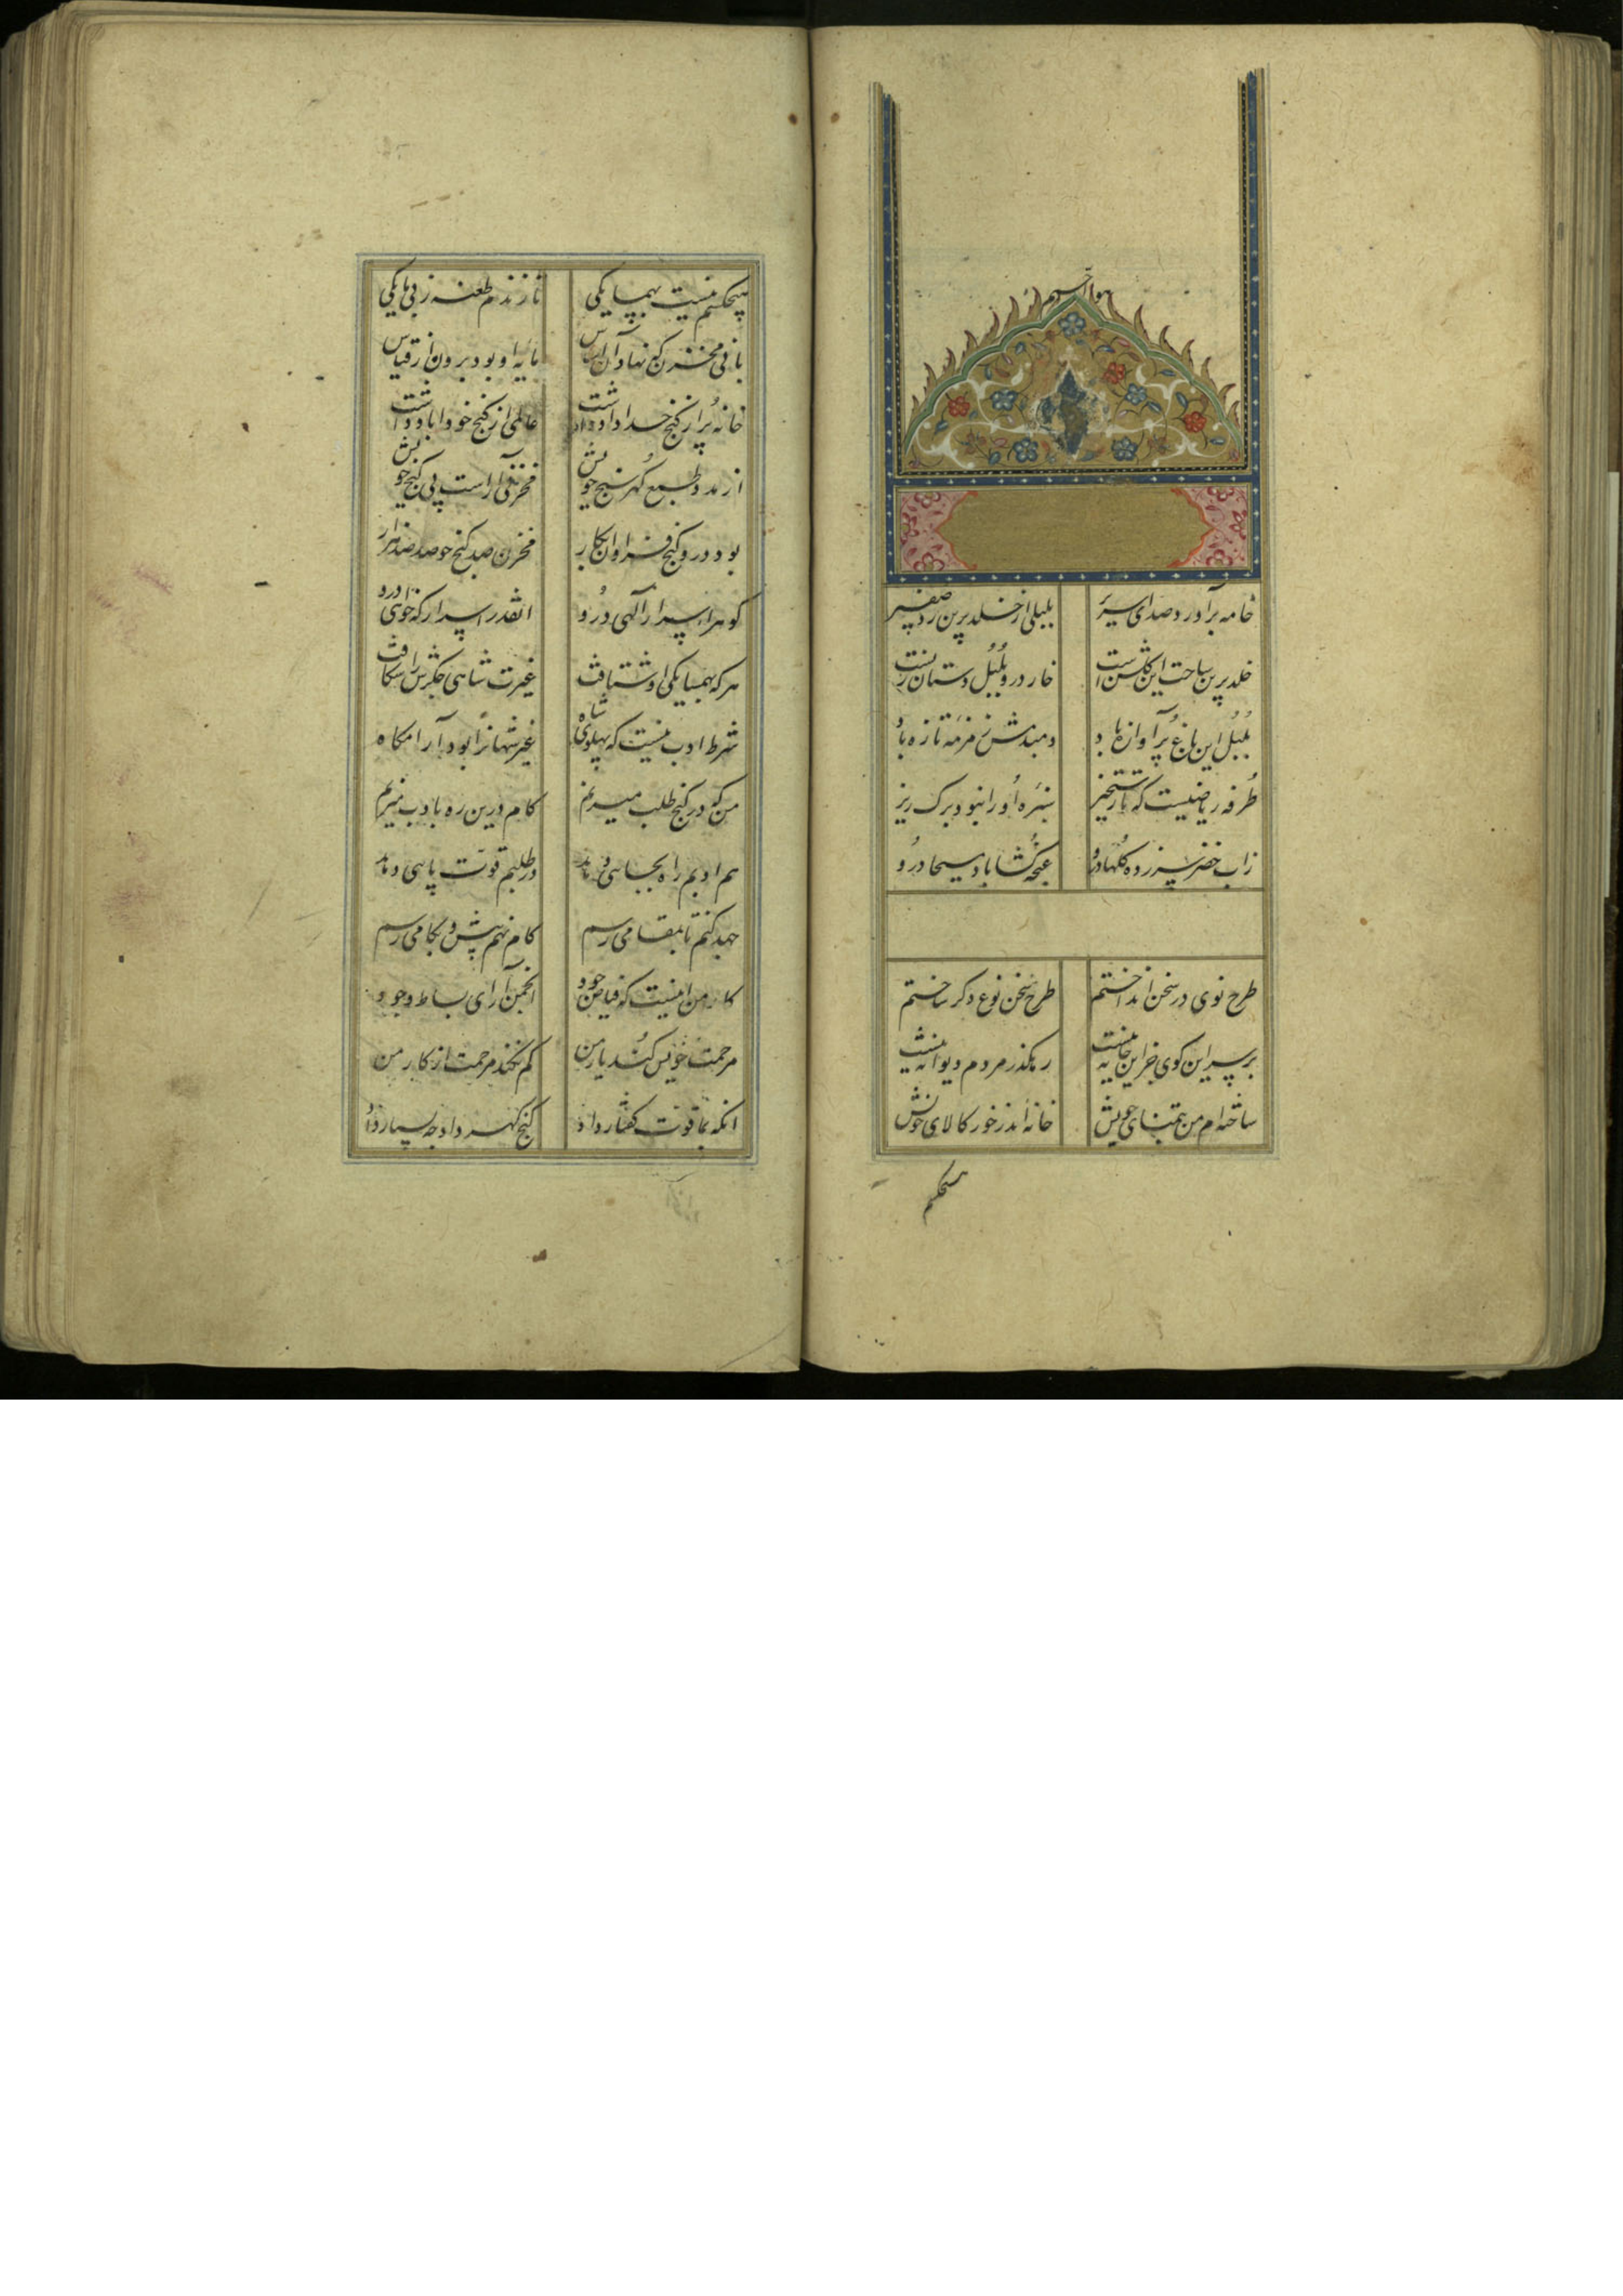 هو الرحیم
خامه برآورد صدای صریر بلبلی از خلد برین زد صفیر
خلد برین ساحت این گلشن است خار در و بلبل دستان زنست
بلبل این باغ پرآوازه باد دمبدمش زمزمه تازه باد
طرفه ریاضیست که تا رستخیز سبزه او را نبود برگ ریز
زاب خضر سبزه و گلها درو غنچه گشا باد مسیحا درو
طرح نوی در سخن انداختم طرح سخن نوع دگر ساختم
بر سر این کوی جز این خانه نیست رهگذر مردم دیوانه نیست
ساخته ام من بتمنای خویش خانه اندر خور کالای خویش
هیچکسم
هیچکسم نیست بهمسایگی تا زندم طعنه ز بی مایگی
بانی مخزن که نهاد آن اساس مایه او بود برون از قیاس
خانه پر از گنج خداداد داشت عالمی از گنج خود آباد داشت
از مدد طبع گهر سنج خویش مخزنی آراست پی گنج خویش
بود درو گنج فراوان بکار مخزن صد گنج چه صد صد هزار
گوهر اسرار الهی درو آنقدر اسرار که خواهی درو
هر که بهمسایگی او شتافت غیرت شاهی جگرش را شکافت
شرط ادب نیست که پهلوی شاه غیر شهانرا بود آرامگاه
من که در گنج طلب میزنم گام درین ره بادب میزنم
هم ادبم راه بجایی دهد در طلبم قوت پایی دهد
جهد کنم تا بمقامی رسم گام نهم پیش و بکامی رسم
کار من اینست که فیاض جود انجمن آرای بساط وجود
مرحمت خویش کند یار من کم نکند مرحمت از کار من
آنکه بما قوت گفتار داد گنج گهر داد چه بسیار داد